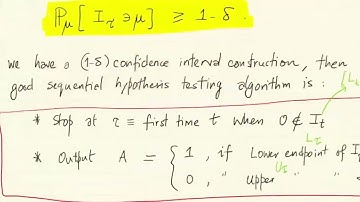 ℙ_μ [ I_τ ∋ μ ] ≥ 1-δ .
we have a (1-δ) confidence interval construction, then
good sequential hypothesis testing algorithm is :
[L_t
* Stop at τ ≡ first time t when 0 ∉ I_t
L_I
* Output A = { 1 , if Lower endpoint of I
U_I
0 , " Upper " "